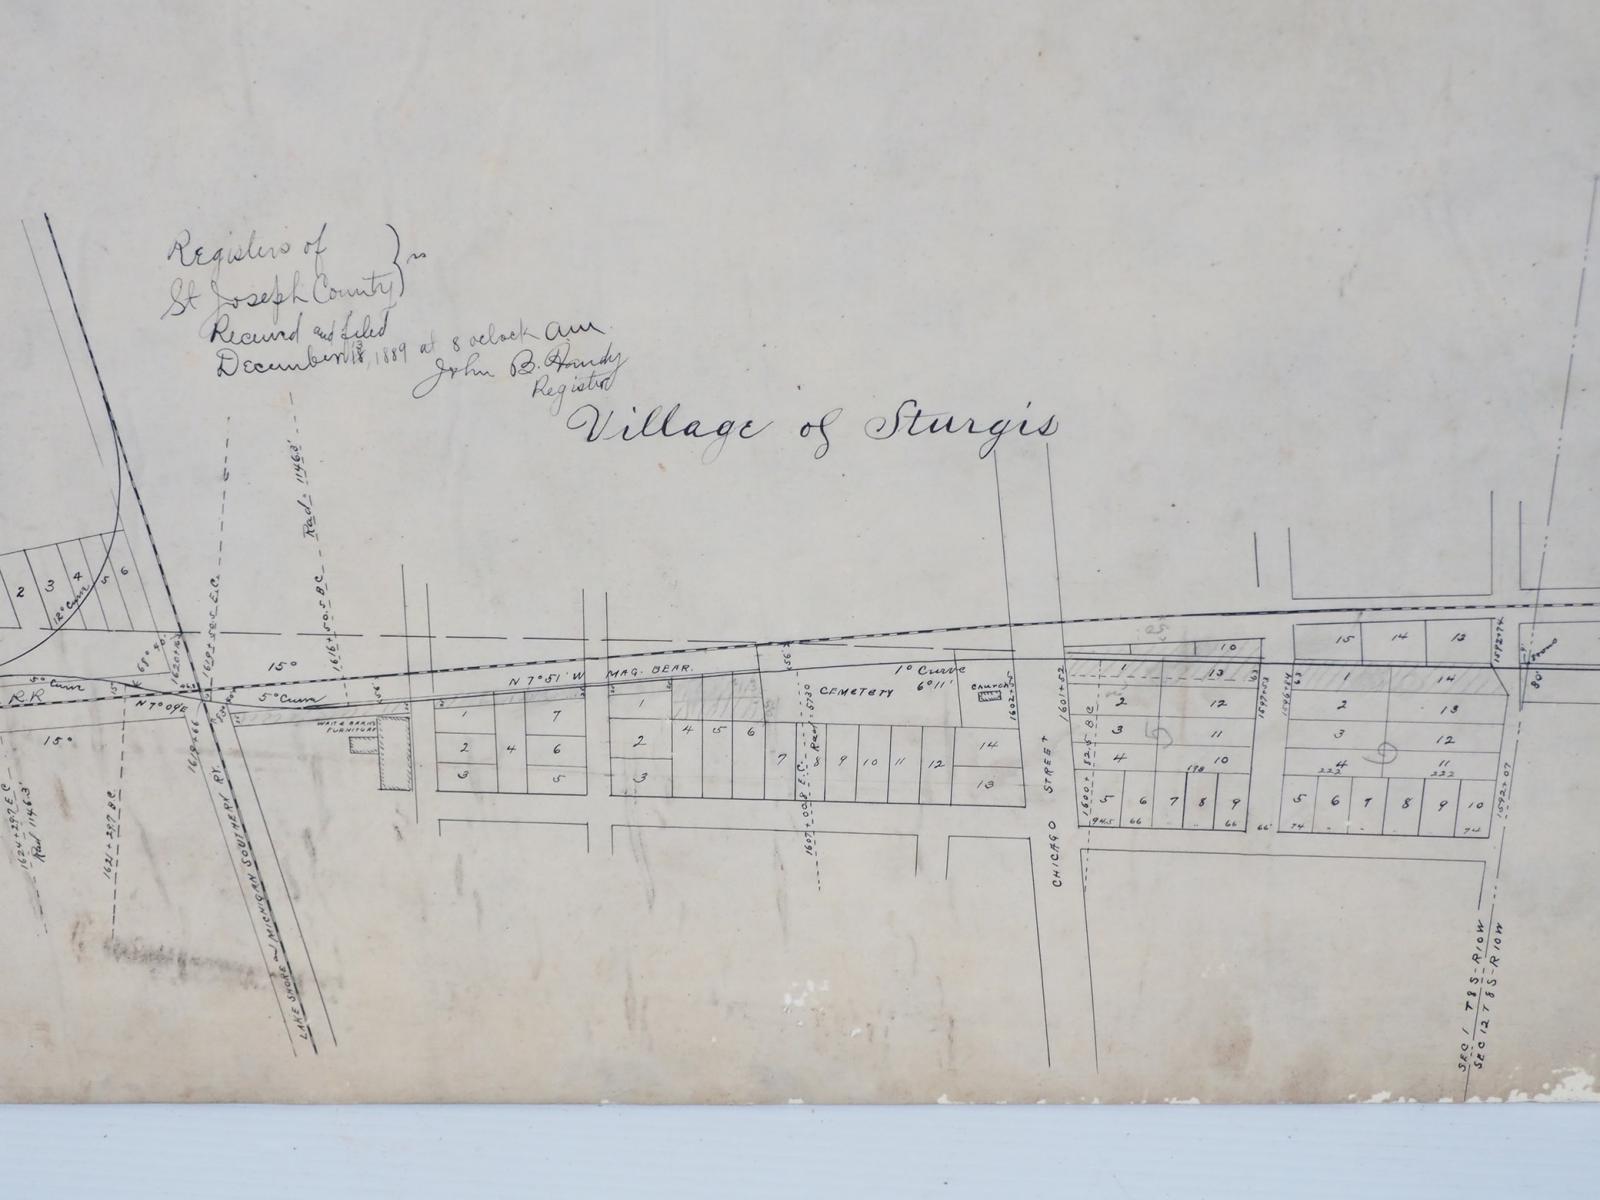 Registers of
St Joseph County
Received and filed
December 18, 1889 at 8 oclock am
John B. Handy
Register
Village of Sturgis
Rad. 1146.3'
1616+50.5 B.C.
1619+50.5 E.C.
1620+63
2 3 4 5 6
12° Curve
15°
5° Curve
R.R
N 7°09'E
5° Curve
15°
N 7°51' W MAG. BEAR.
1° Curve
6°11'
CEMETERY
Church
FURNITURE
1 2 3 4 7 6 5
1 2 3 4 5 6 7 8 9 10 11 12 14 13
Rad. 5730
1607+00.8 E.C.
1602+55
1601+52
1600+82.5 B.C.
CHICAGO STREET
10
1 13
2 12
3 11
4 10
5
198
5 6 7 8 9
94.5 66 66 66
1597+53
15 14 13
1 14
2 13
3 12
4 11
6
222 222
5 6 7 8 9 10
74 74
1592+74
1592+07
80'
1619+66
1624+29.7 E.C.
Rad 1146.3'
1621+29.7 B.C.
LAKE SHORE and MICHIGAN SOUTHERN RY.
SEC 1 T 8 S-R10W
SEC 12 T 8 S-R10W